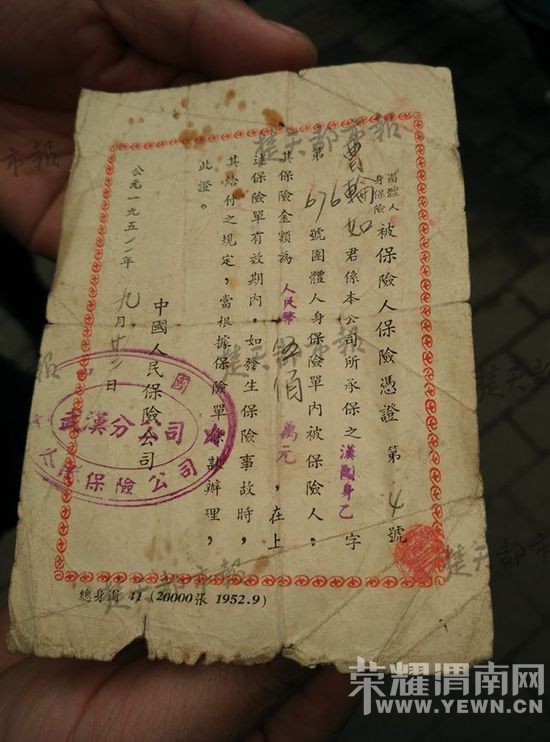 團體人身保險
被保險人保險憑證 第 4 號
曹輪如 君係本公司所承保之 漢團身乙 字
第 676 號團體人身保險單內被保險人;
其保險金額為 人民幣 伍佰 萬元,在上
述保險單有效期內,如發生保險事故時,
其給付之規定,當根據保險單條款辦理,
此證。
中國人民保險公司
公元一九五二年九月廿二日
武漢分公司
保險公司
總身團 41 (20000張 1952.9)
楚天都市報
楚天都市報
楚天都市報
楚天都市報
市報
荣耀渭南网
WWW.YEWN.CN